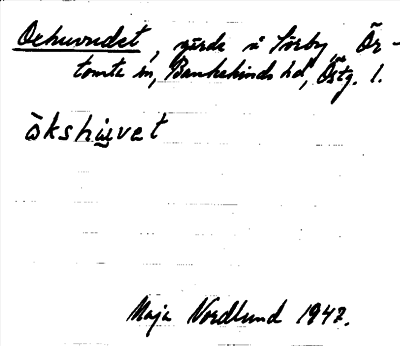 Oxhuvudet, gärde i Sörby Ör-
tomta sn, Bankekinds hd, Östg. l.
ökshu̲vet
Maja Nordlund 1947.